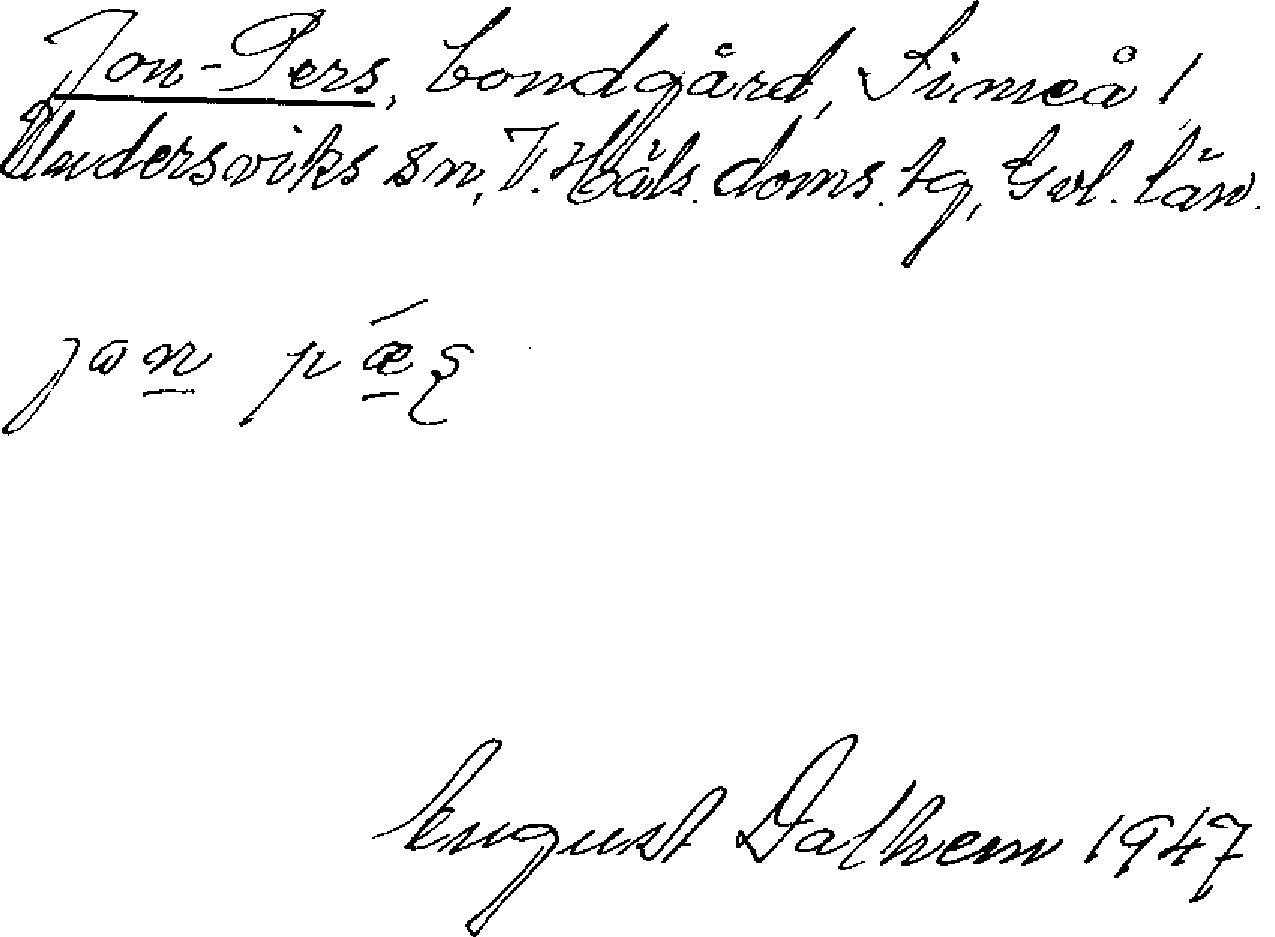 Jon-Pers, bondgård, Simeå 1,
Undersviks sn, V. Häls. doms. tg, Gvl. län.
jon pǽʂ
August Dalhem 1947